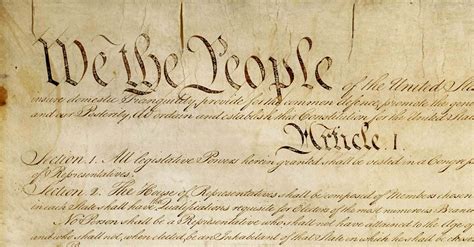 We the People of the United Stat
insure domestic Tranquility, provide for the common defence, promote the gen
and our Posterity, do ordain and establish this Constitution for the United State
Article. I.
Section. 1. All legislative Powers herein granted shall be vested in a Congress
of Representatives.
Section. 2. The House of Representatives shall be composed of Members chosen
in each State shall have Qualifications requisite for Electors of the most numerous Branch
No Person shall be a Representative who shall not have attained to the Age
and who shall not, when elected, be an Inhabitant of that State in which he shall